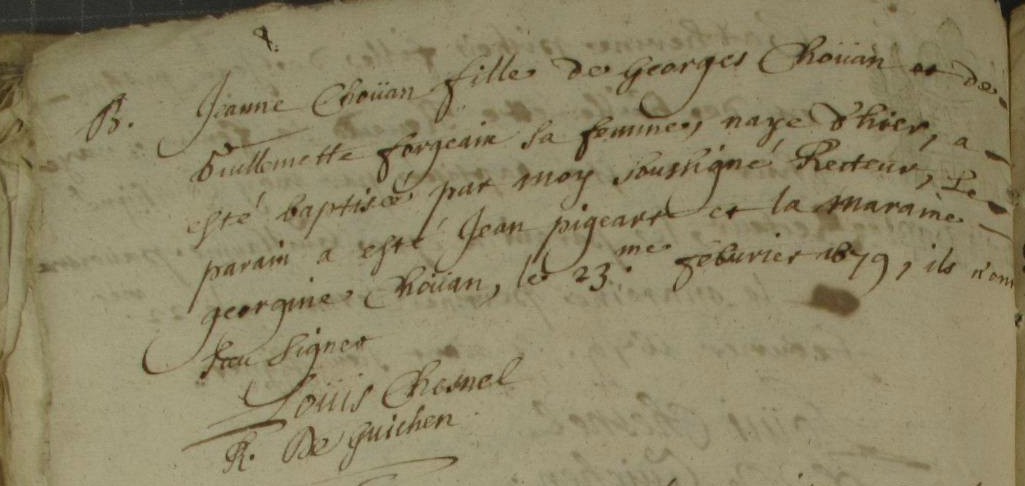 B. Jeanne Choüan fille de Georges Choüan et de
Guillemette forgeain sa femme, naye d'hier, a
esté baptisée par moy soussigné Recteur, Le
parain a esté Jean pigeart et la maraine
georgine Choüan, le 23.me febvrier 1679, ils n'ont
sceu signer
Louis Chesnel
R. De Guichen